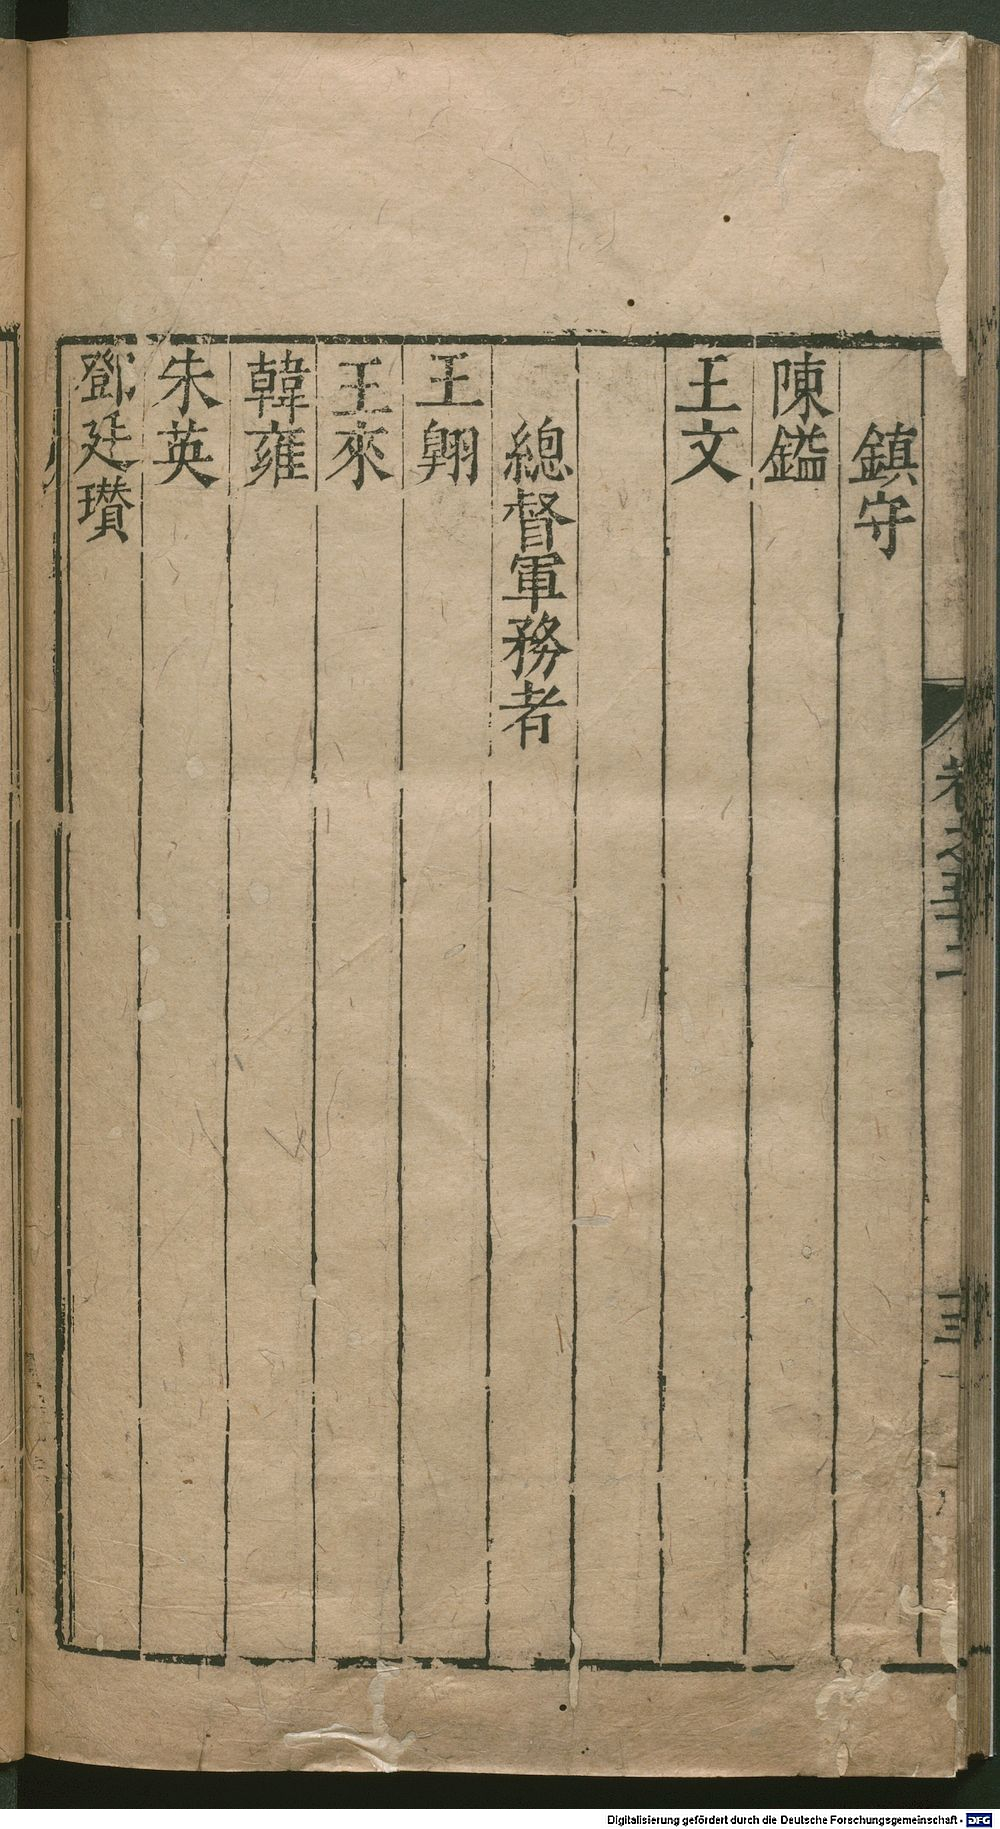 鎮守
陳鎰
王文
總督軍務者
王翺
王來
韓雍
朱英
鄧廷瓚
Digitalisierung gefördert durch die Deutsche Forschungsgemeinschaft - DFG